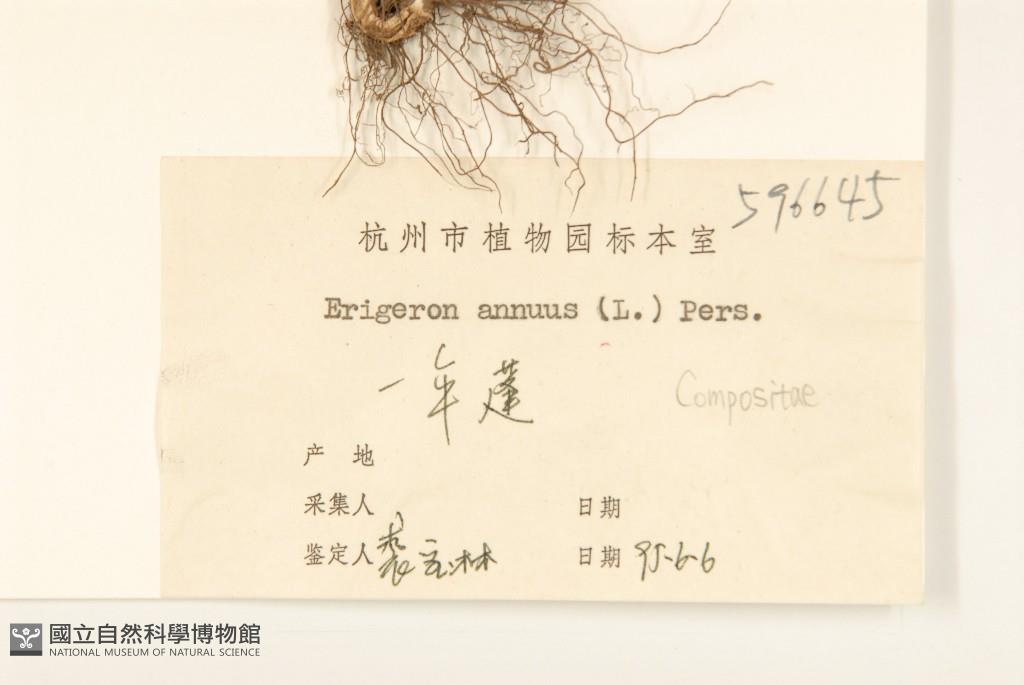 596645
杭州市植物园标本室
Erigeron annuus (L.) Pers.
一年蓬
Compositae
产 地
采集人 日期
鉴定人 裘宝林 日期 95-6-6
國立自然科學博物館
NATIONAL MUSEUM OF NATURAL SCIENCE